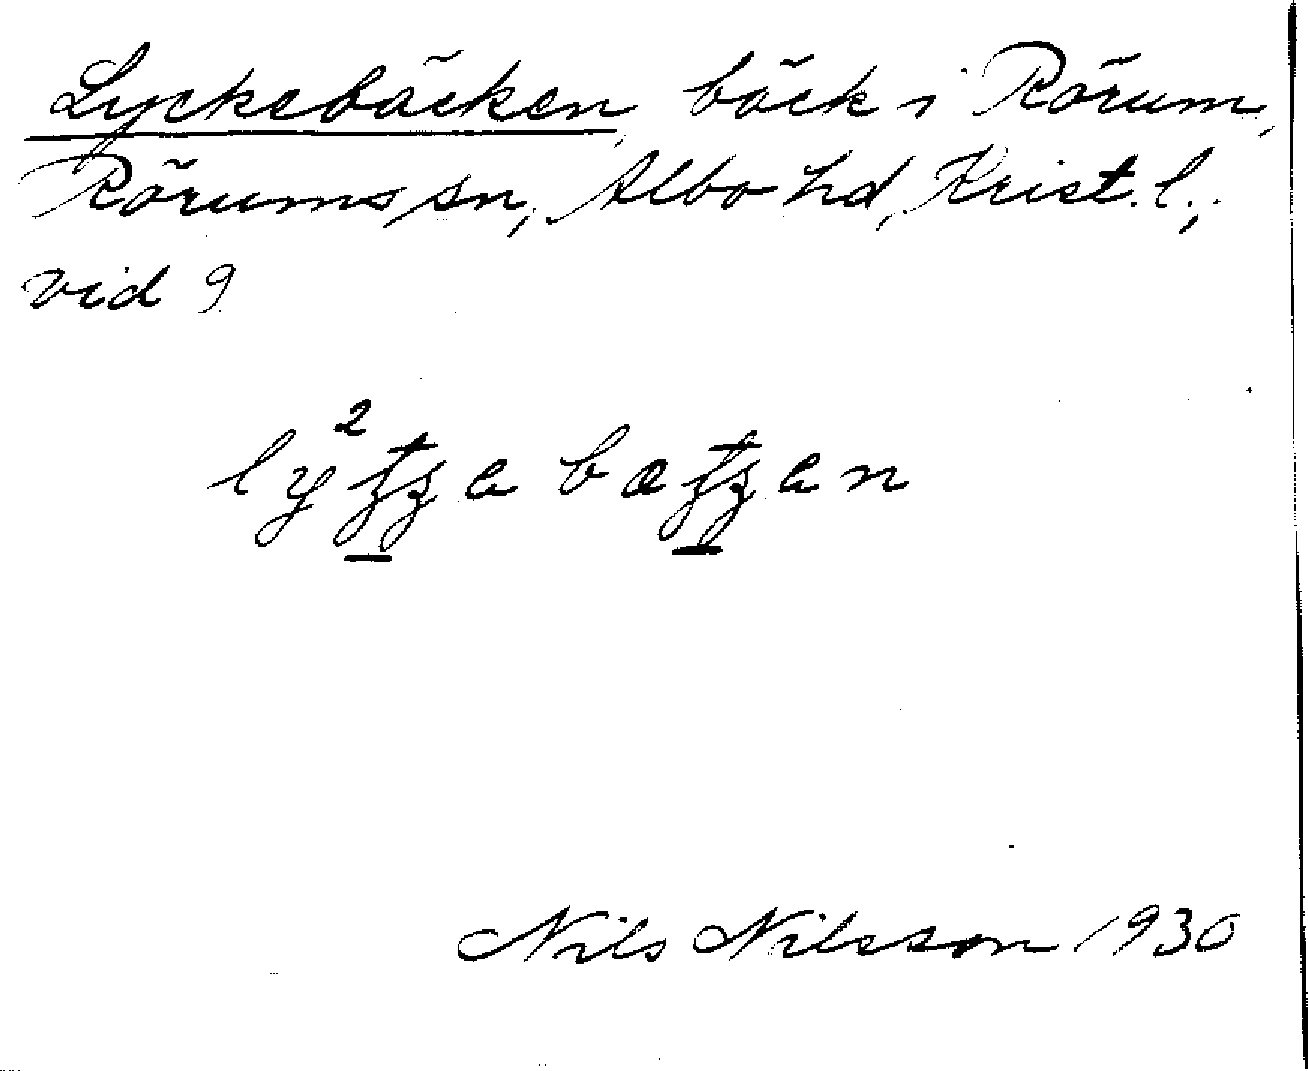 Lyckebäcken, bäck i Rörum,
Rörums sn, Albo hd, Krist. l.,
vid 9
Nils Nilsson 1930